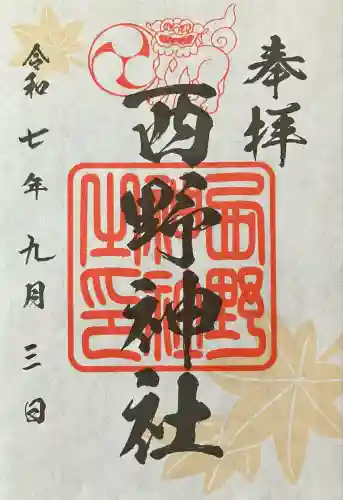 奉拝
西野神社
西野神社之印
令和七年九月三日